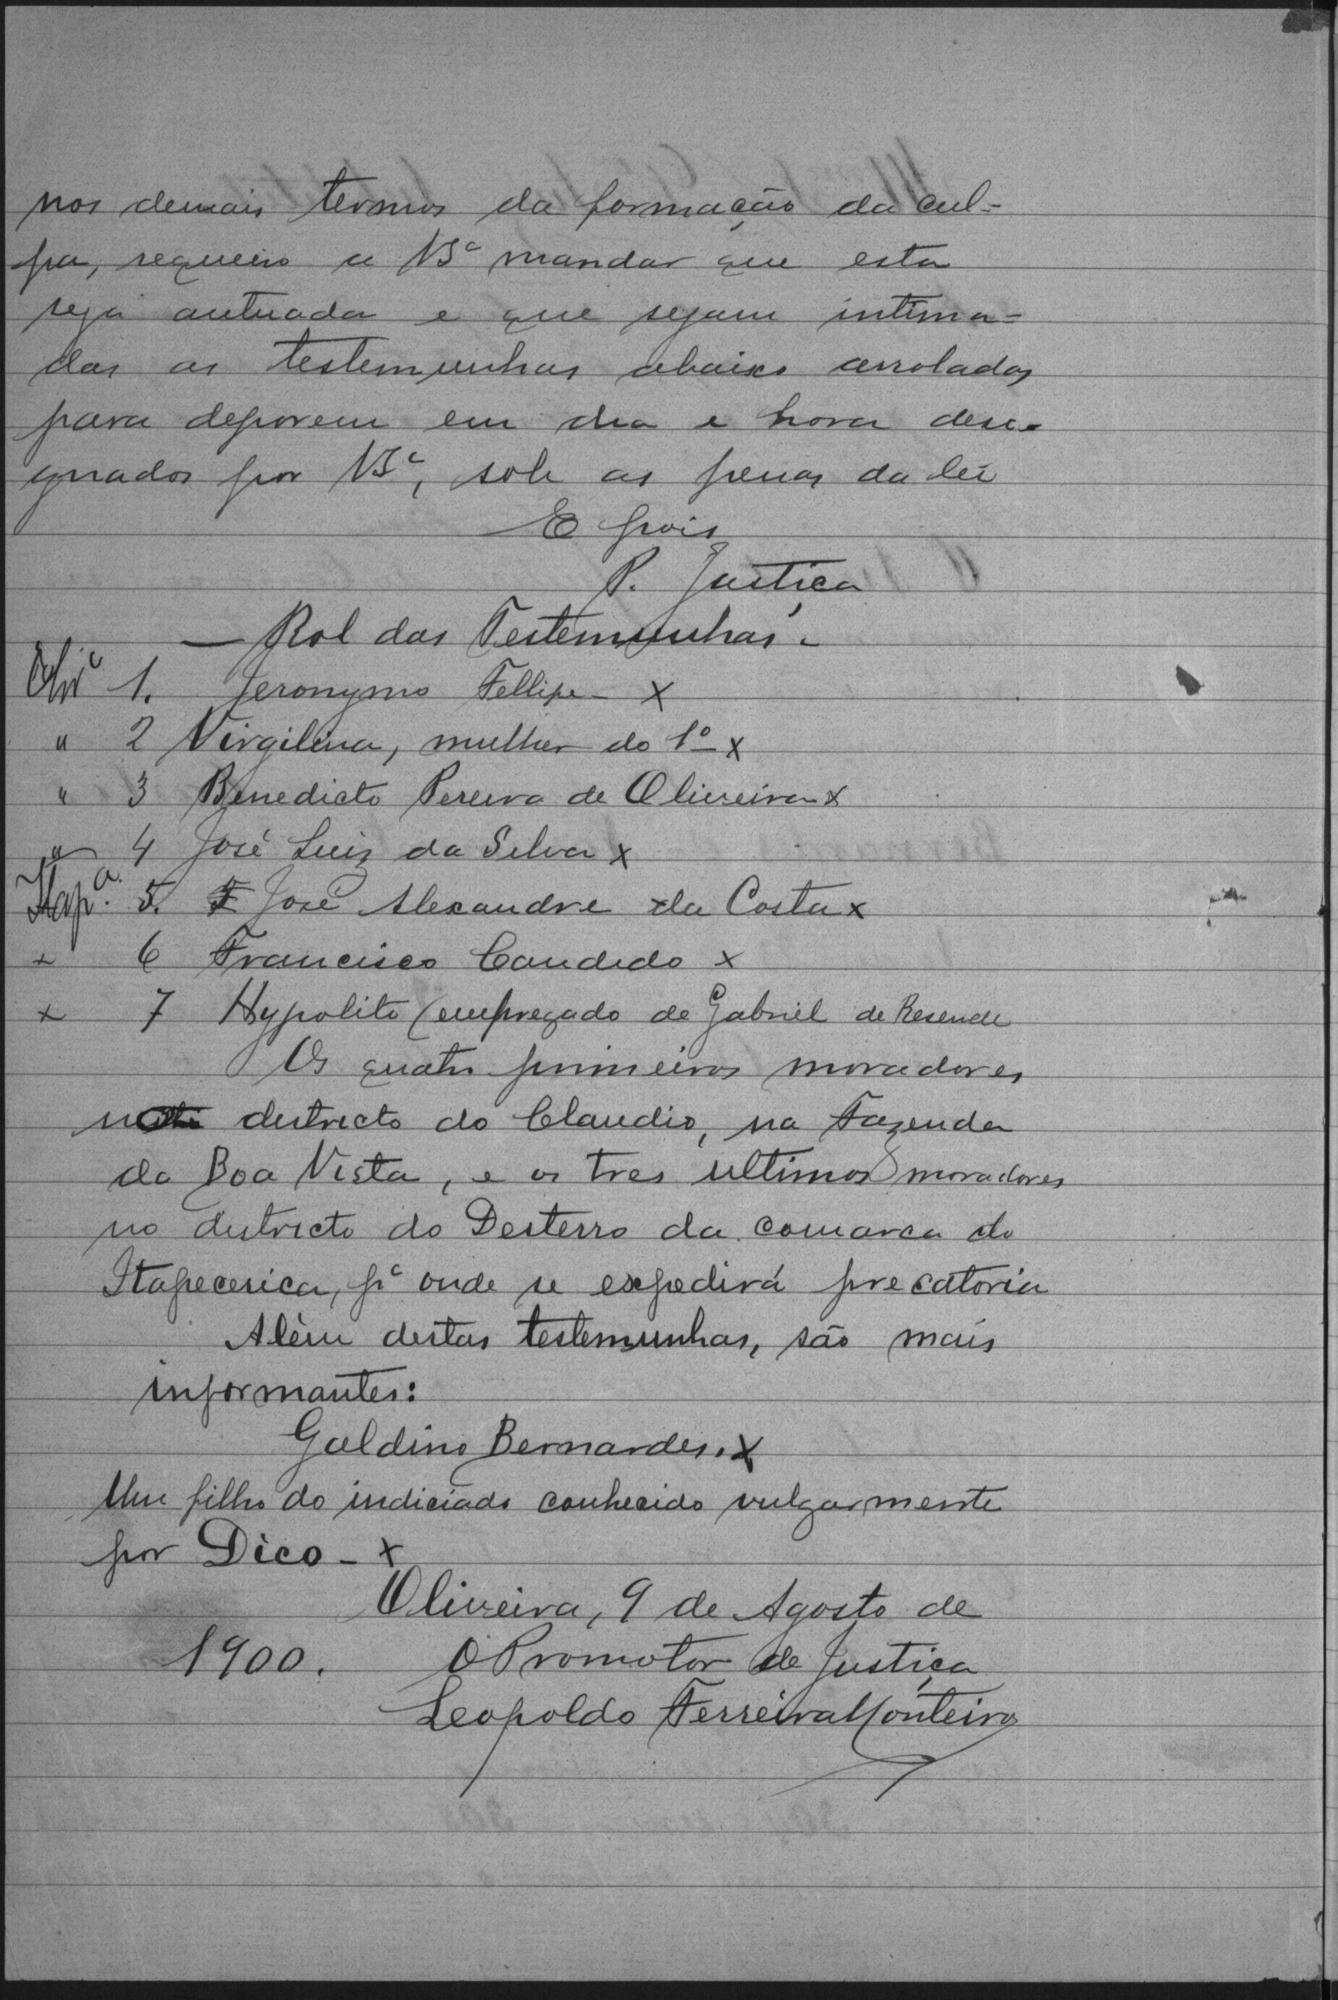 nos demais termos da formação da cul-
pa, requeiro a VSª mandar que esta
seja autuada e que sejam intima-
das as testemunhas abaixo arroladas
para deporem em dia e hora desi-
gnados por VSª, sob as penas da lei
E pois
P. Justiça
— Rol das Testemunhas. —
Olivª 1. Jeronymo Fellipe — x
" 2 Virgilina, mulher do 1º — x
" 3 Benedicto Pereira de Oliveira x
" 4 José Luiz da Silva x
Itapª. 5. José Alexandre da Costa x
" 6 Francisco Candido x
" 7 Hypolito (empregado de Gabriel de Resende
Os quatro primeiros moradores
no districto do Claudio, na Fazenda
da Boa Vista, e os tres ultimos moradores
no districto do Desterro da comarca do
Itapecerica, pª onde se expedirá precatoria
Alèm destas testemunhas, são mais
informantes:
Galdino Bernardes. x
Um filho do indiciado conhecido vulgarmente
por Dico — x
Oliveira, 9 de Agosto de
1900. O Promotor de Justiça
Leopoldo Ferreira Monteiro